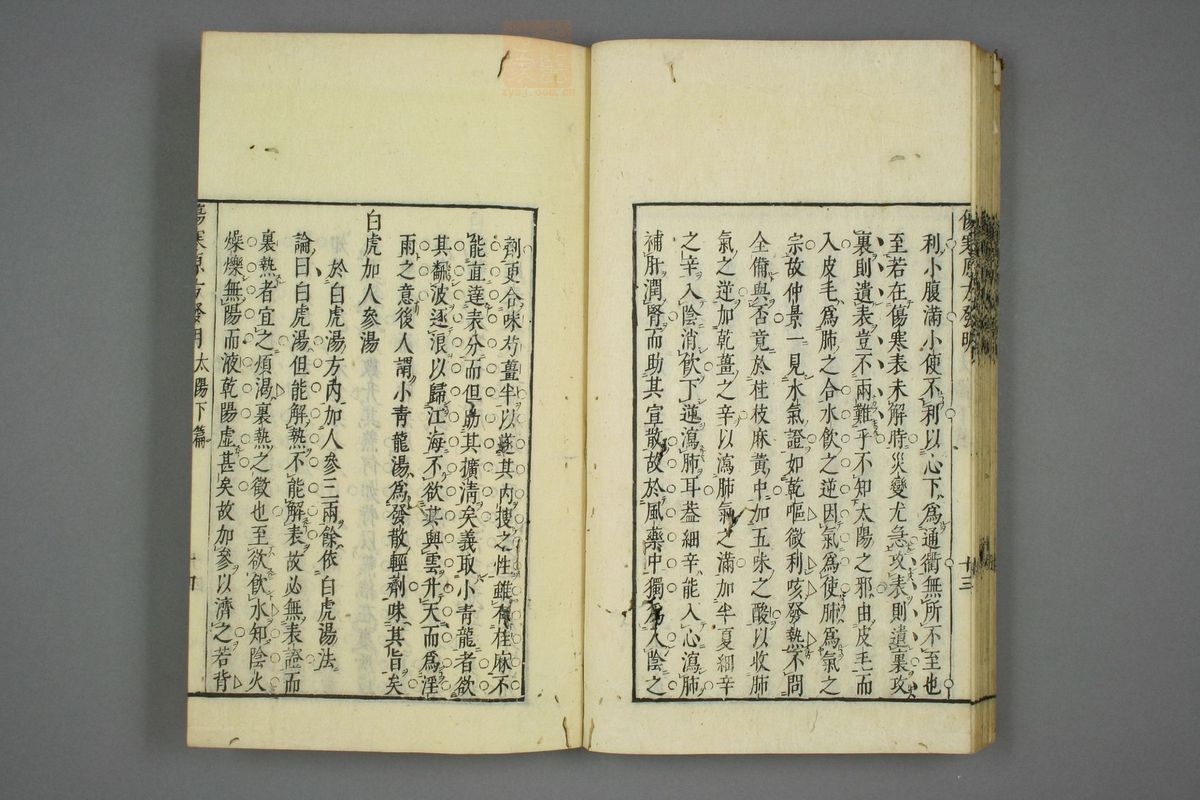 利小腹滿小便不利以心下爲通衢無所不至也
至若在傷寒表未解時災變尤急攻表則遺裏攻
裏則遺表豈不兩難乎不知太陽之邪由皮毛而
入皮毛爲肺之合水飲之逆因氣爲使肺爲氣之
宗故仲景一見水氣證如乾嘔微利咳發熱不問
全備與否竟於桂枝麻黃中加五味之酸以收肺
氣之逆加乾薑之辛以瀉肺氣之滿加半夏細辛
之辛入陰消飲下逆瀉肺耳蓋細辛能入心瀉肺
補肝潤腎而助其宣散故於風藥中獨爲入陰之
傷寒原方發明
十三
劑更合味芍薑半以蕩其內搜之性雖有桂麻不
能直達表分而但助其擴清矣義取小青龍者欲
其翻波逐浪以歸江海不欲其興雲升天而爲淫
雨之意後人謂小青龍湯爲發散輕劑味其旨矣
白虎加人參湯
於白虎湯方內加人參三兩餘依白虎湯法
論曰白虎湯但能解熱不能解表故必無表證而
裏熱者宜之煩渴裏熱之徵也至欲飲水知陰火
燥爍無陽而液乾陽虛甚矣故加參以濟之若背
傷寒原方發明 太陽下篇
十四
zysj.com.cn